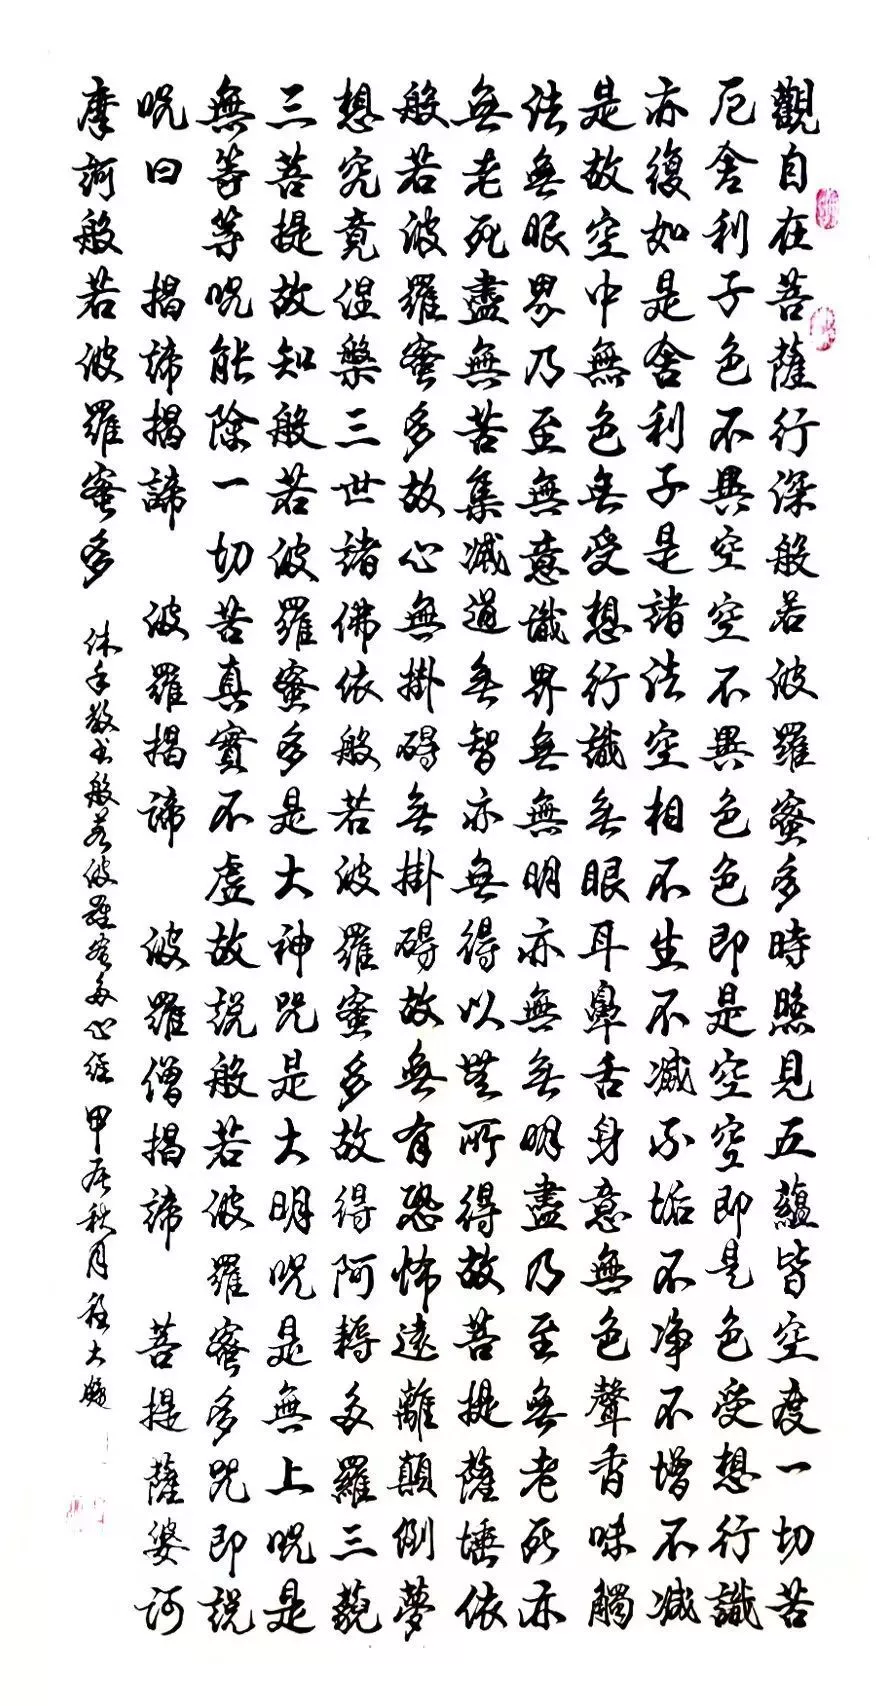 觀自在菩薩行深般若波羅蜜多時照見五蘊皆空度一切苦
厄舍利子色不異空空不異色色即是空空即是色受想行識
亦復如是舍利子是諸法空相不生不滅不垢不净不增不減
是故空中無色無受想行識無眼耳鼻舌身意無色聲香味觸
法無眼界乃至無意識界無無明亦無無明盡乃至無老死亦
無老死盡無苦集滅道無智亦無得以無所得故菩提薩埵依
般若波羅蜜多故心無掛碍無掛碍故無有恐怖遠離顛倒夢
想究竟涅槃三世諸佛依般若波羅蜜多故得阿耨多羅三藐
三菩提故知般若波羅蜜多是大神咒是大明咒是無上咒是
無等等咒能除一切苦真實不虛故説般若波羅蜜多咒即説
咒曰 揭諦揭諦 波羅揭諦 波羅僧揭諦 菩提薩婆訶
摩訶般若波羅蜜多
沐手敬书般若波羅蜜多心經 甲辰秋月程大